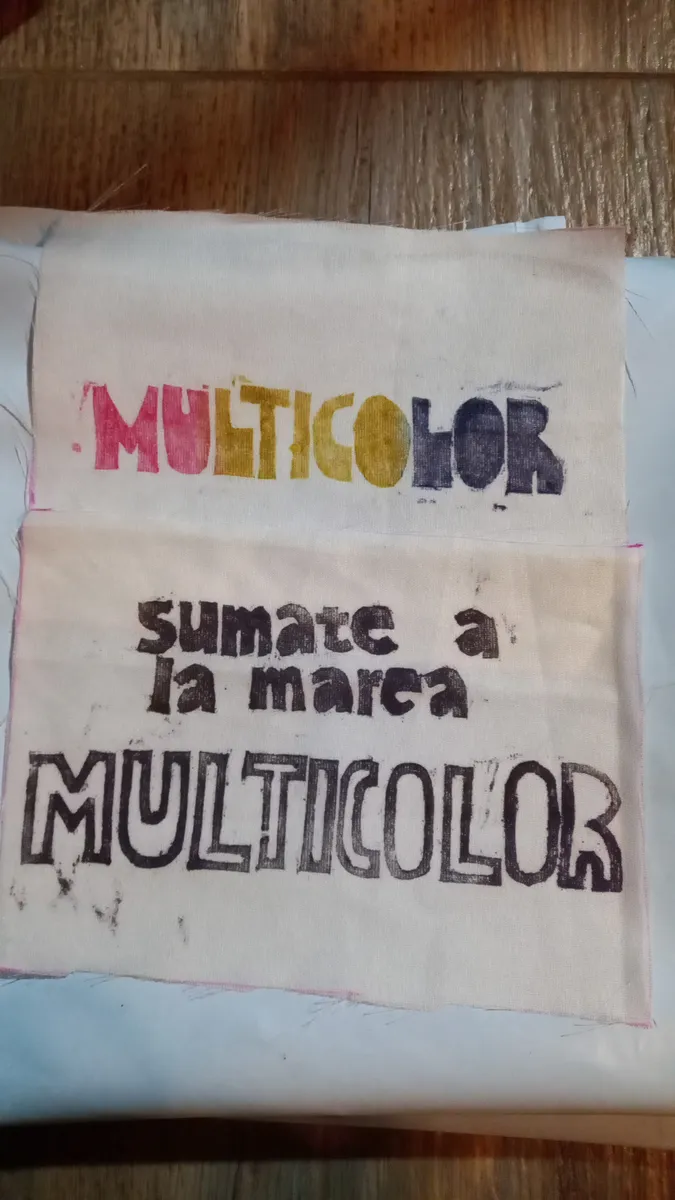 MULTICOLOR
sumate a
la marea
MULTICOLOR